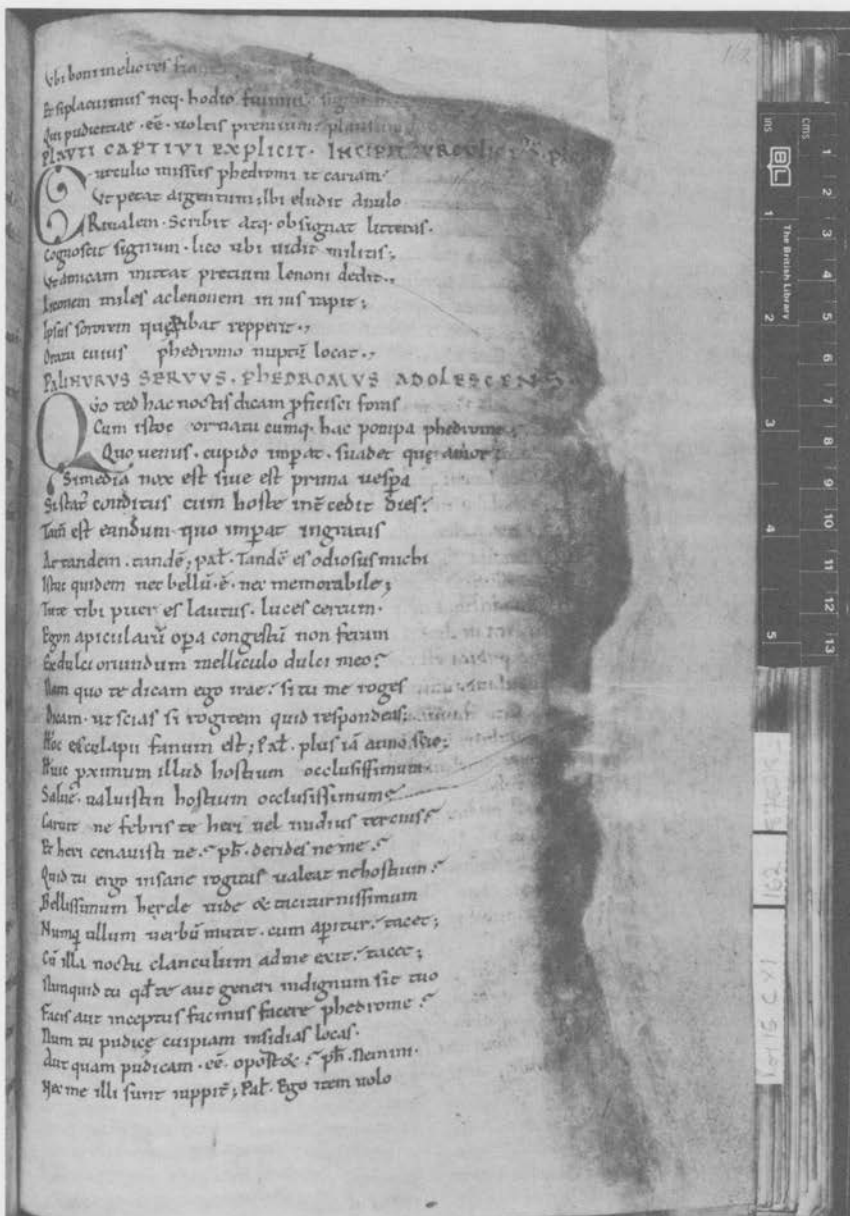 162
Vbi boni meliores fiant
Et si placuimus neq· hodio fuimus
Qui pudicitiae ·eē· uoltis premium· plausum
PLAVTI CAPTIVI EXPLICIT· INCIPIT
Curculio missus phedromi it cariam·
Vt petat argentum· ibi eludit anulo
Riualem· Scribit atq· obsignat litteras·
Cognoscit signum· lico ubi uidit militis;
Vt amicam mittat precium lenoni dedit·,
Liconem miles ac lenonem in ius rapit;
Ipsus sororem quę ꝑibat repperit·,
Oratu cuius phedromo nuptū locat·,
PALINVRVS SERVVS· PHEDROMVS ADOLESCENS·
Quo ted hac noctis dicam ꝓficisci foras
Cum istoc ornatu cumq· hac pompa phedrome·
Quo uenus· cupido imꝑat· suadet quę amor·
Si media nox est siue est prima uesꝑa
Si stat᷒ conditus cum hoste int̄cedit dies?
Tam̄ est eundum quo imꝑat ingratus
At tandem· tandē; pał· Tandē es odiosus michi
Istuc quidem nec bellū·ē· nec memorabile;
Tute tibi puer es lautus· luces cereum·
Egon apicularū oꝑa congestū non feram
Ex dulci oriundum melliculo dulci meo?
Nam quo te dicam ego irae? si tu me roges
Dicam· ut scias si rogitem quid respondeas;
Hoc esculapii fanum est; Pał· plus iā anno scio;
Huic ꝓximum illud hostium occlusissimum·
Salue· ualuistin hostium occlusissimum
Caruit ne febris te heri uel nudius tercius?
Et heri cenauisti ne? pħ· derides ne me?
Quid tu ergo insane rogitas ualeat ne hostium?
Bellissimum hercle uide & taciturnissimum
Numq̄ ullum uerbū mutit· cum aꝑitur? tacet;
Cū illa noctu clanculum ad me exit? tacet;
Nunquid tu qđ te aut generi indignum sit tuo
Facis aut inceptas facinus facere phedrome?
Num tu pudicę cuipiam insidias locas·
Aut quam pudicam ·eē· oport&? pħ· Nemini·
Nec me illi sunt iuppit̄; Pał· Ego item uolo
INS
CMS
BL
The British Library
1
2
3
4
5
1
2
3
4
5
6
7
8
9
10
11
12
13
162